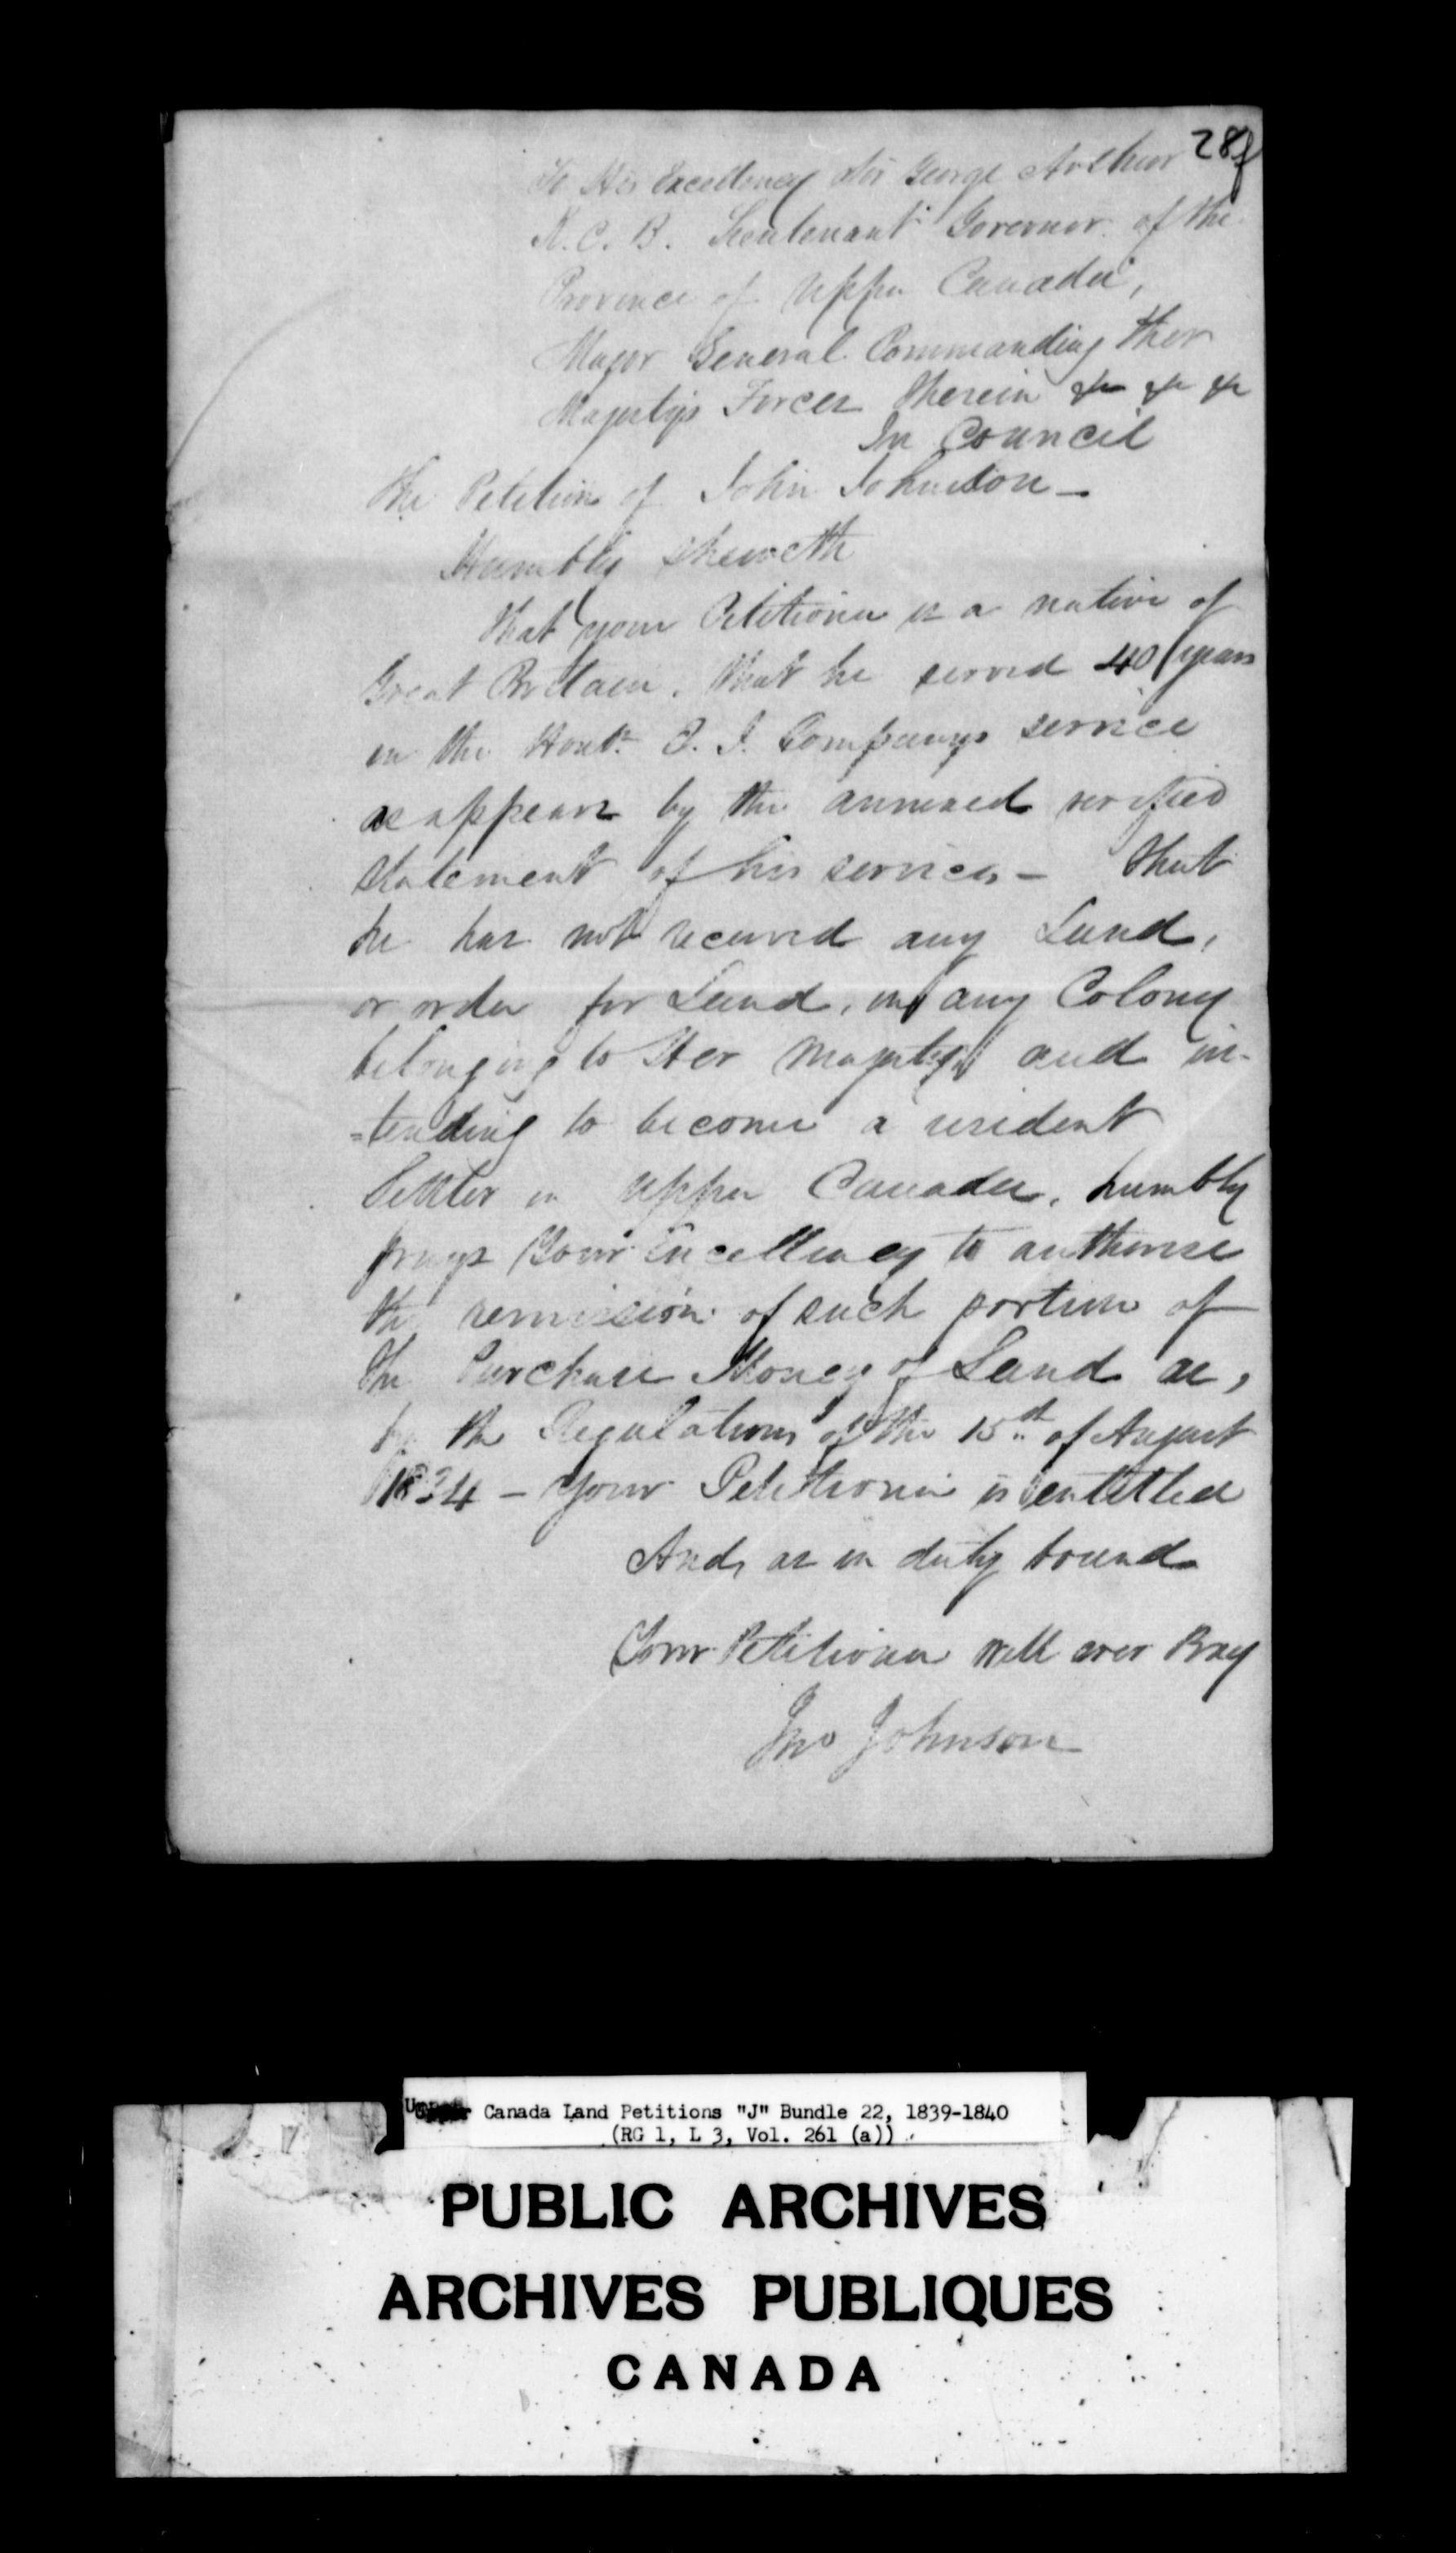 28f
To His Excellency Sir George Arthur
K. C. B. Lieutenant Governor of the
Province of Upper Canada,
Major General Commanding Her
Majestys Forces therein &c &c &c
In Council
The Petition of John Johnson —
Humbly Sheweth
That your Petitioner is a native of
Great Britain. that he served 40 years
in the Honble E. I. Companys service
as appears by the annexed verified
statement of his services — that
he has not received any Land,
or order for Land, in any Colony
belonging to Her Majesty, and in-
=tending to become a resident
Settler in Upper Canada, humbly
prays Your Excellency to authorise
the remission of such portion of
the Purchase Money of Land as,
by the Regulations of the 15th of August
1834 — Your Petitioner is entitled
And, as in duty bound
Your Petitioner will ever Pray
Jno Johnson
Upper Canada Land Petitions "J" Bundle 22, 1839-1840
(RG 1, L 3, Vol. 261 (a))
PUBLIC ARCHIVES
ARCHIVES PUBLIQUES
CANADA